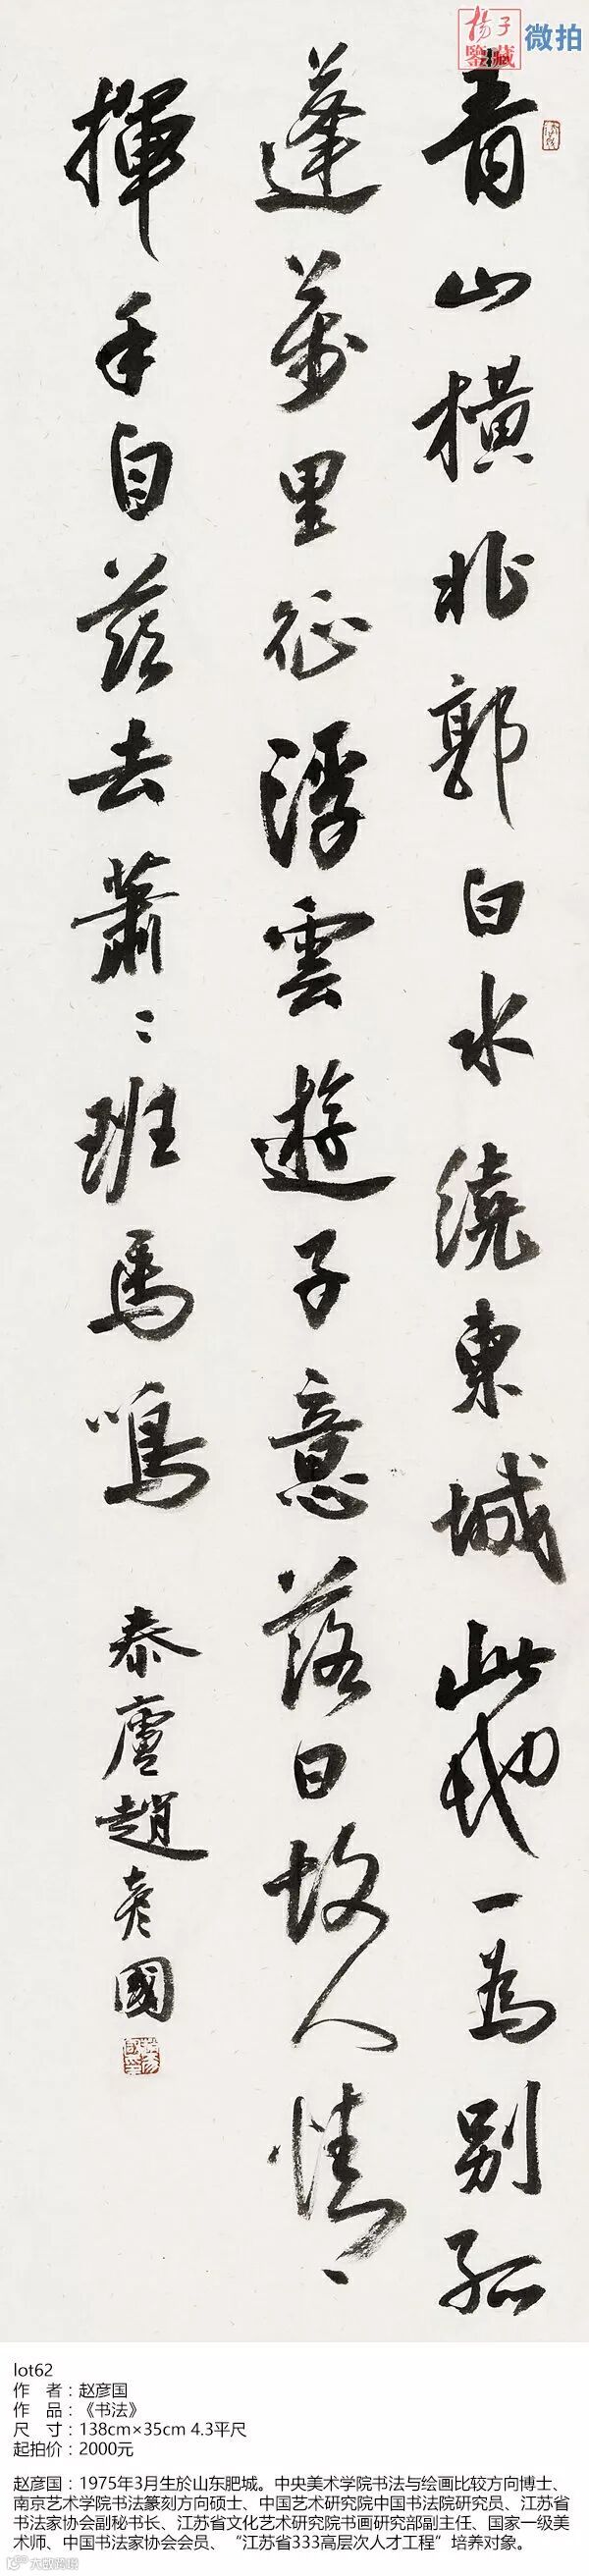 揚子
鑒藏
微拍
青山橫北郭白水繞東城此地一為別孤
蓬萬里征浮雲遊子意落日故人情
揮手自茲去蕭〻班馬鳴
泰廬趙彥國
lot62
作 者：赵彦国
作 品：《书法》
尺 寸：138cm×35cm 4.3平尺
起拍价：2000元
赵彦国：1975年3月生於山东肥城。中央美术学院书法与绘画比较方向博士、
南京艺术学院书法篆刻方向硕士、中国艺术研究院中国书法院研究员、江苏省
书法家协会副秘书长、江苏省文化艺术研究院书画研究部副主任、国家一级美
术师、中国书法家协会会员、“江苏省333高层次人才工程”培养对象。
大数跨境